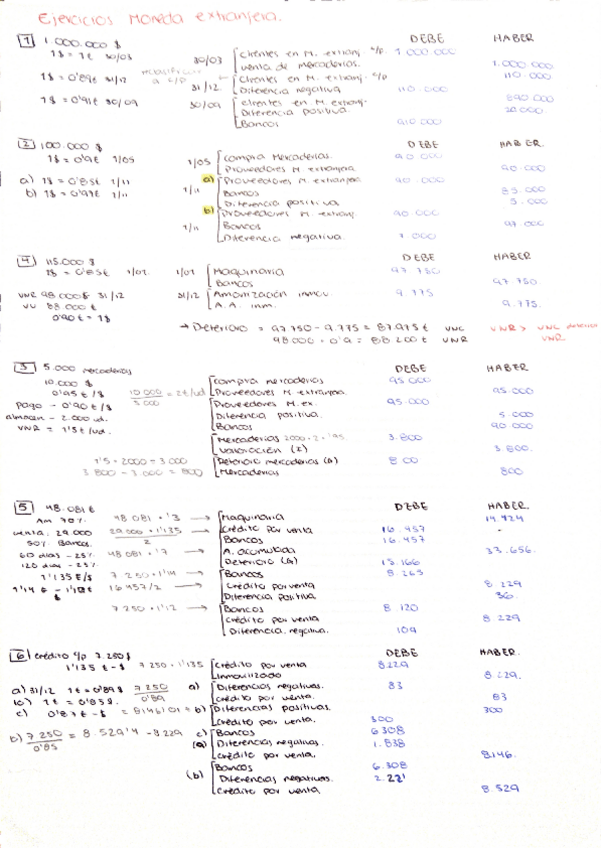 Ejercicios Moneda extranjera.
DEBE HABER
1 1.000.000 $
1$ = 1€ 30/03
30/03 Clientes en M. extranj. c/p 1.000.000
venta de mercaderías. 1.000.000
1$ = 0'89€ 31/12
31/12 Clientes en M. extranj. c/p 110.000
Diferencia negativa 110.000
1$ = 0'91€ 30/09
30/09 clientes en M. extranj. 890.000
Diferencia positiva
Bancos 910.000
DEBE HABER.
2 100.000 $
1$ = 0'9€ 1/05
1/05 Compra Mercaderías. 90.000
Proveedores M. extranjera 90.000
a) 1$ = 0'85€ 1/11
a) Proveedores M. extranjera 90.000
b) 1$ = 0'97€ 1/11
1/11 Bancos 85.000
Diferencia positiva 5.000
b) Proveedores M. extranj. 90.000
1/11 Bancos 97.000
Diferencia negativa. 7.000
DEBE HABER
4 115.000 $
1$ = 0'85€ 1/01
1/01 Maquinaria 97.750
Bancos 97.750.
VNR 98.000$ 31/12
31/12 Amortización inmov. 9.775
A.A. inm. 9.775.
VU 88.000 €
0'90 € = 1$
→ Deterioro = 97.750 - 9.775 = 87.975 € VNC
98.000 · 0'9 = 88.200 € VNR
VNR > VNC
VNR
DEBE HABER
3 5.000 mercaderías
10.000 $
0'95 €/$
10.000 / 5.000 = 2€/ud
compra mercaderías 95.000
Proveedores M. extranjera. 95.000
pago - 0'90 €/$
Proveedores M. ex. 95.000
almacen - 2.000 ud.
Diferencia positiva. 5.000
VNR = 1'5€/ud.
Bancos 90.000
Mercaderías 2000 · 2 · '95 3.800
variación (E) 3.800.
1'5 · 2000 = 3.000
Deterioro mercaderías (G) 800
3.800 - 3.000 = 800
Mercaderías 800
DEBE HABER.
5 48.081 €
Am 70%
48.081 · '3 → Maquinaria 14.424
venta: 29.000
29.000 · 1'135 / 2 → Crédito por venta 16.457
50% Bancos.
Bancos 16.457
60 días - 25%
48.081 · '7 → A. acumulada 33.656.
120 días - 25%
Deterioro (G) 15.166
1'135 €/$
7.250 · 1'14 → Bancos 8.265
16.457/2 → Crédito por venta 8.229
Diferencia positiva 36
7.250 · 1'12 → Bancos 8.120
crédito por venta 8.229
Diferencia negativa. 109
DEBE HABER.
6 crédito c/p 7.250 $
1'135 €-$ 7.250 · 1'135
Crédito por venta 8.229
Inmovilizado 8.229.
a) 31/12 1€ = 0'89$ 7.250 / 0'89
a) Diferencias negativas. 83
crédito por venta. 83
b) 1€ = 0'85$.
c) 0'87€-$ = 8146'01
b) Diferencias positivas. 300
crédito por venta. 300
b) 7.250 / 0'85 = 8.529'4 - 8.229
c) Bancos 6.308
(a) Diferencias negativas. 1.838
crédito por venta. 8.146.
Bancos 6.308
(b) Diferencias negativas. 2.221
crédito por venta. 8.529